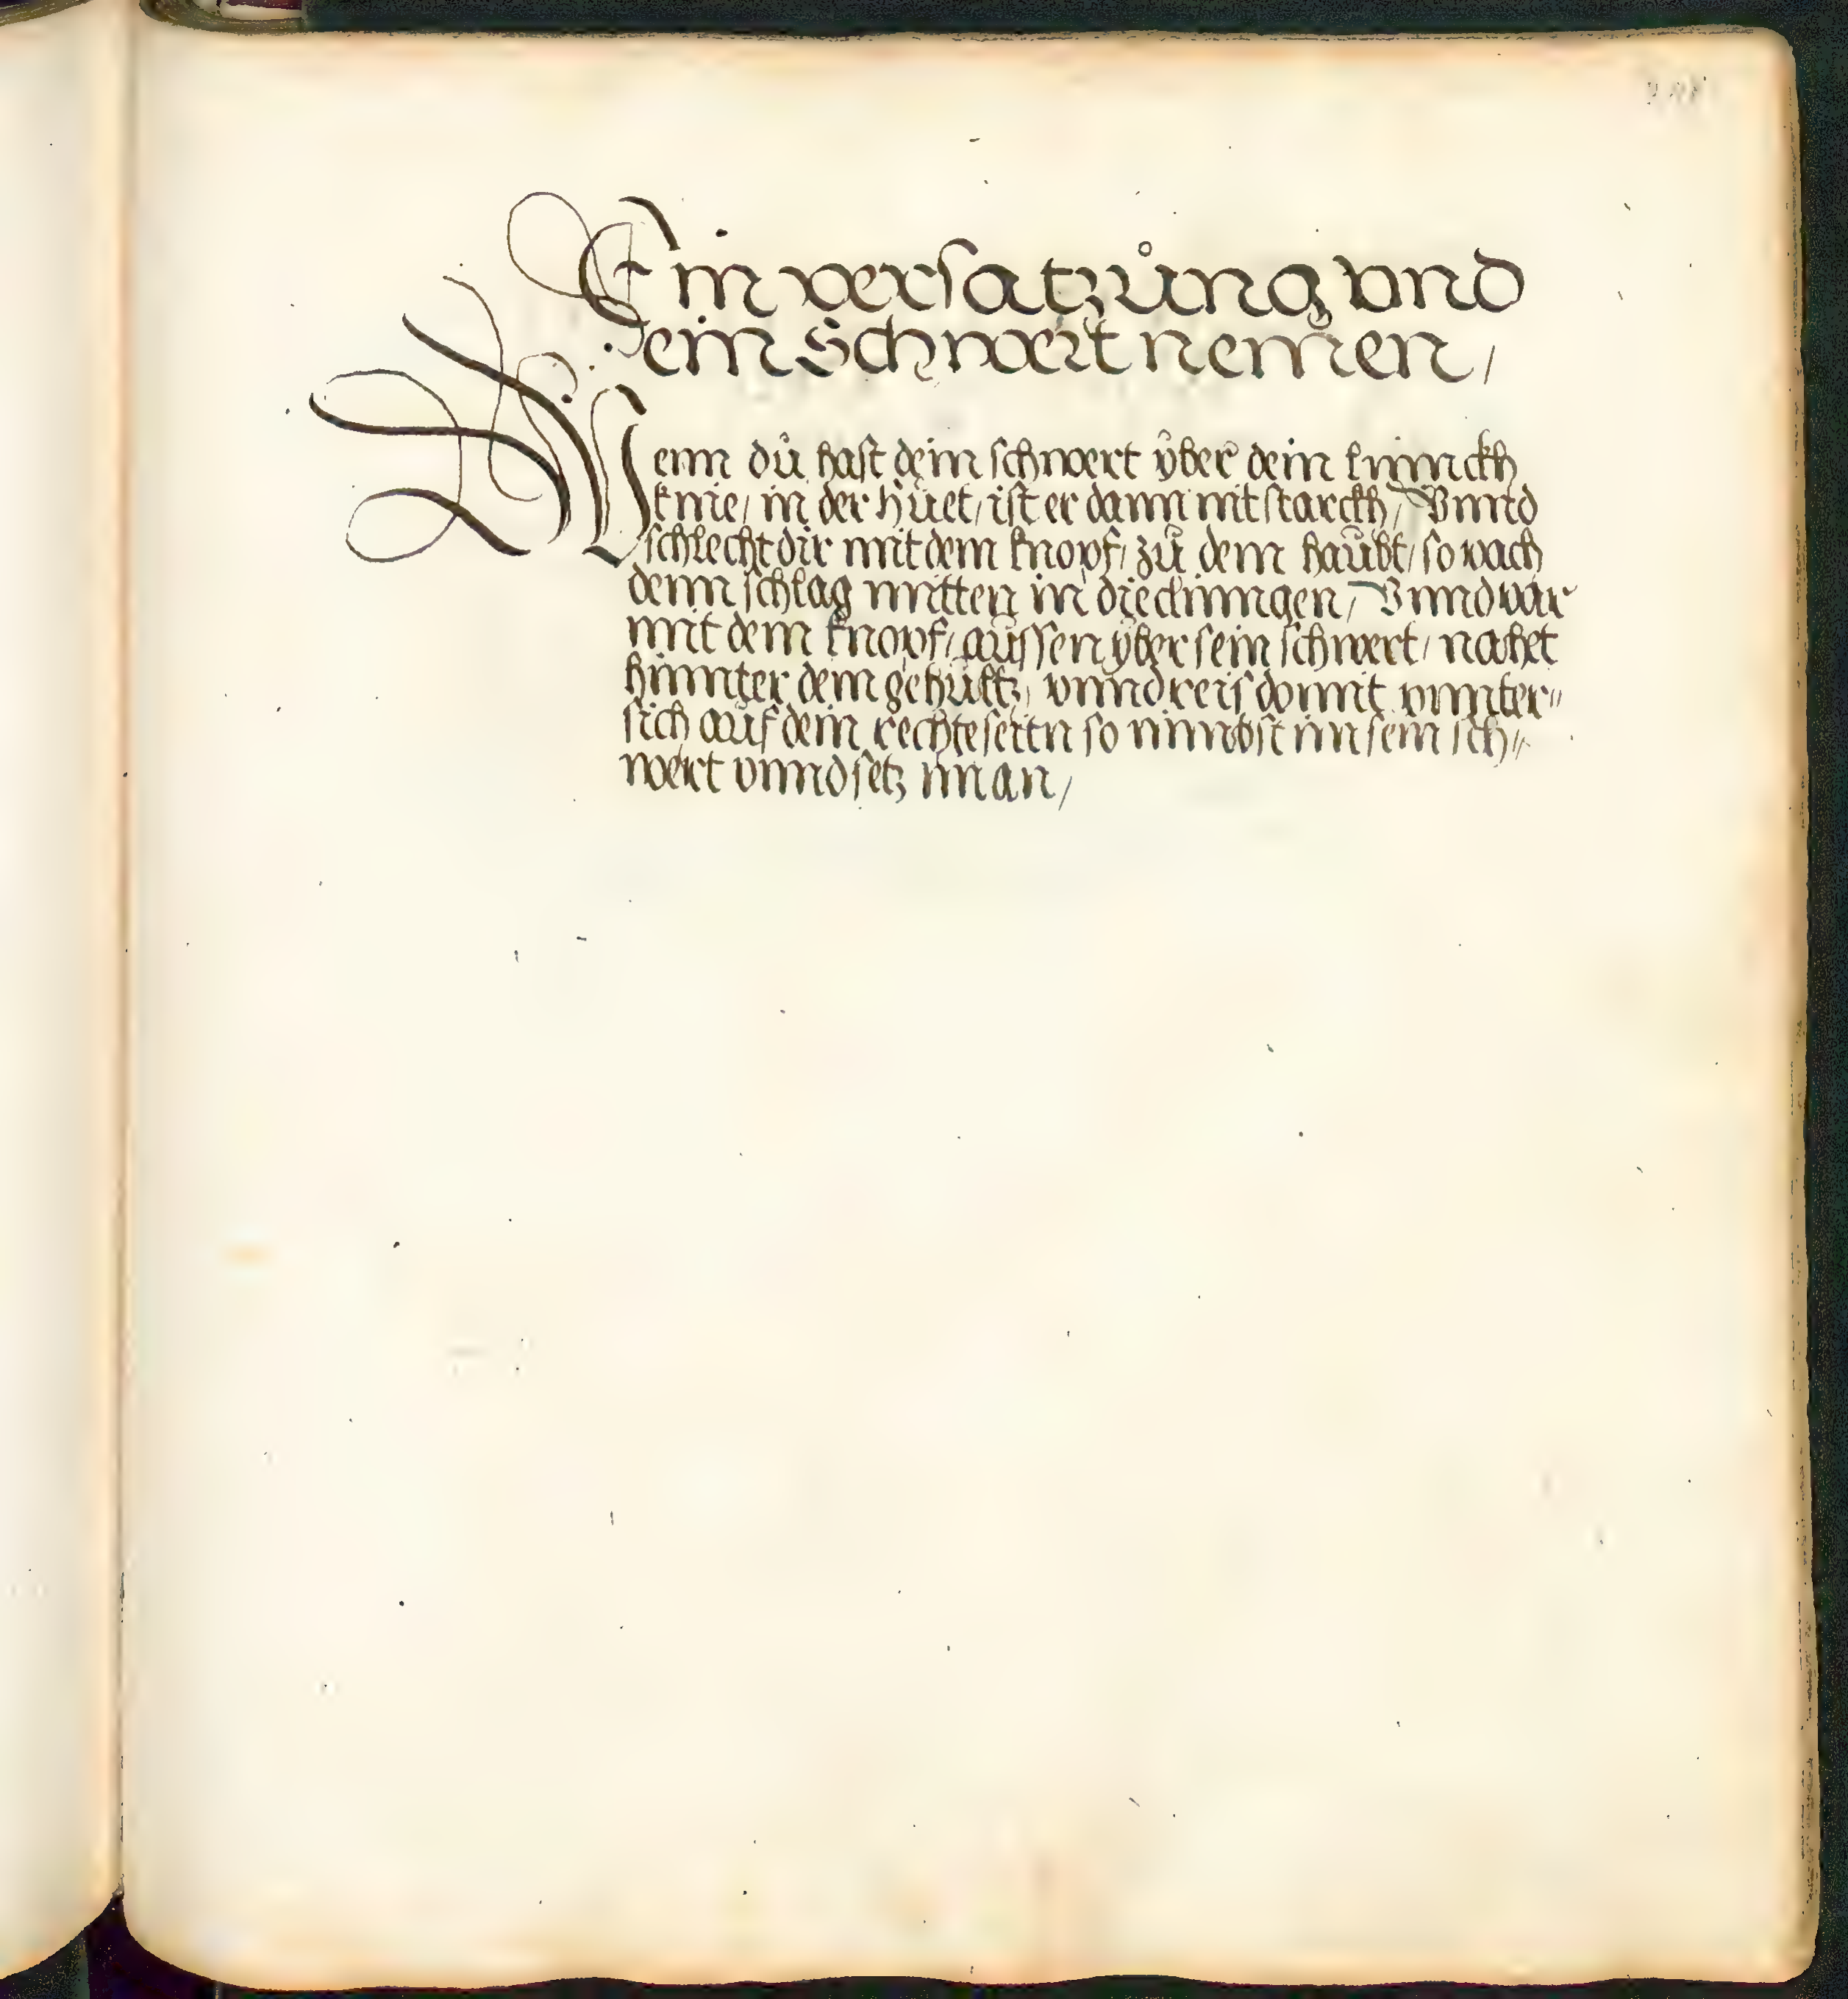 Ein versatzůng vnd
ein Schwert nemen /
Wenn dů hast dein schwert ÿber dein linnckh
knie / in der hůet / ist er dann nit starckh / Vnnd
schlecht dir mit dem knopf / zů dem haůbt / so vach
denn schlag mitten in die clinngen / Vnnd var
mit dem knopf / aůssen ÿber sein schwert / nahet
hinnter dem gehůltz / vnnd reis domit vnnter〃
sich aůf dein rechte seittn so nimbst im sein sch〃
wert vnnd setz im an /